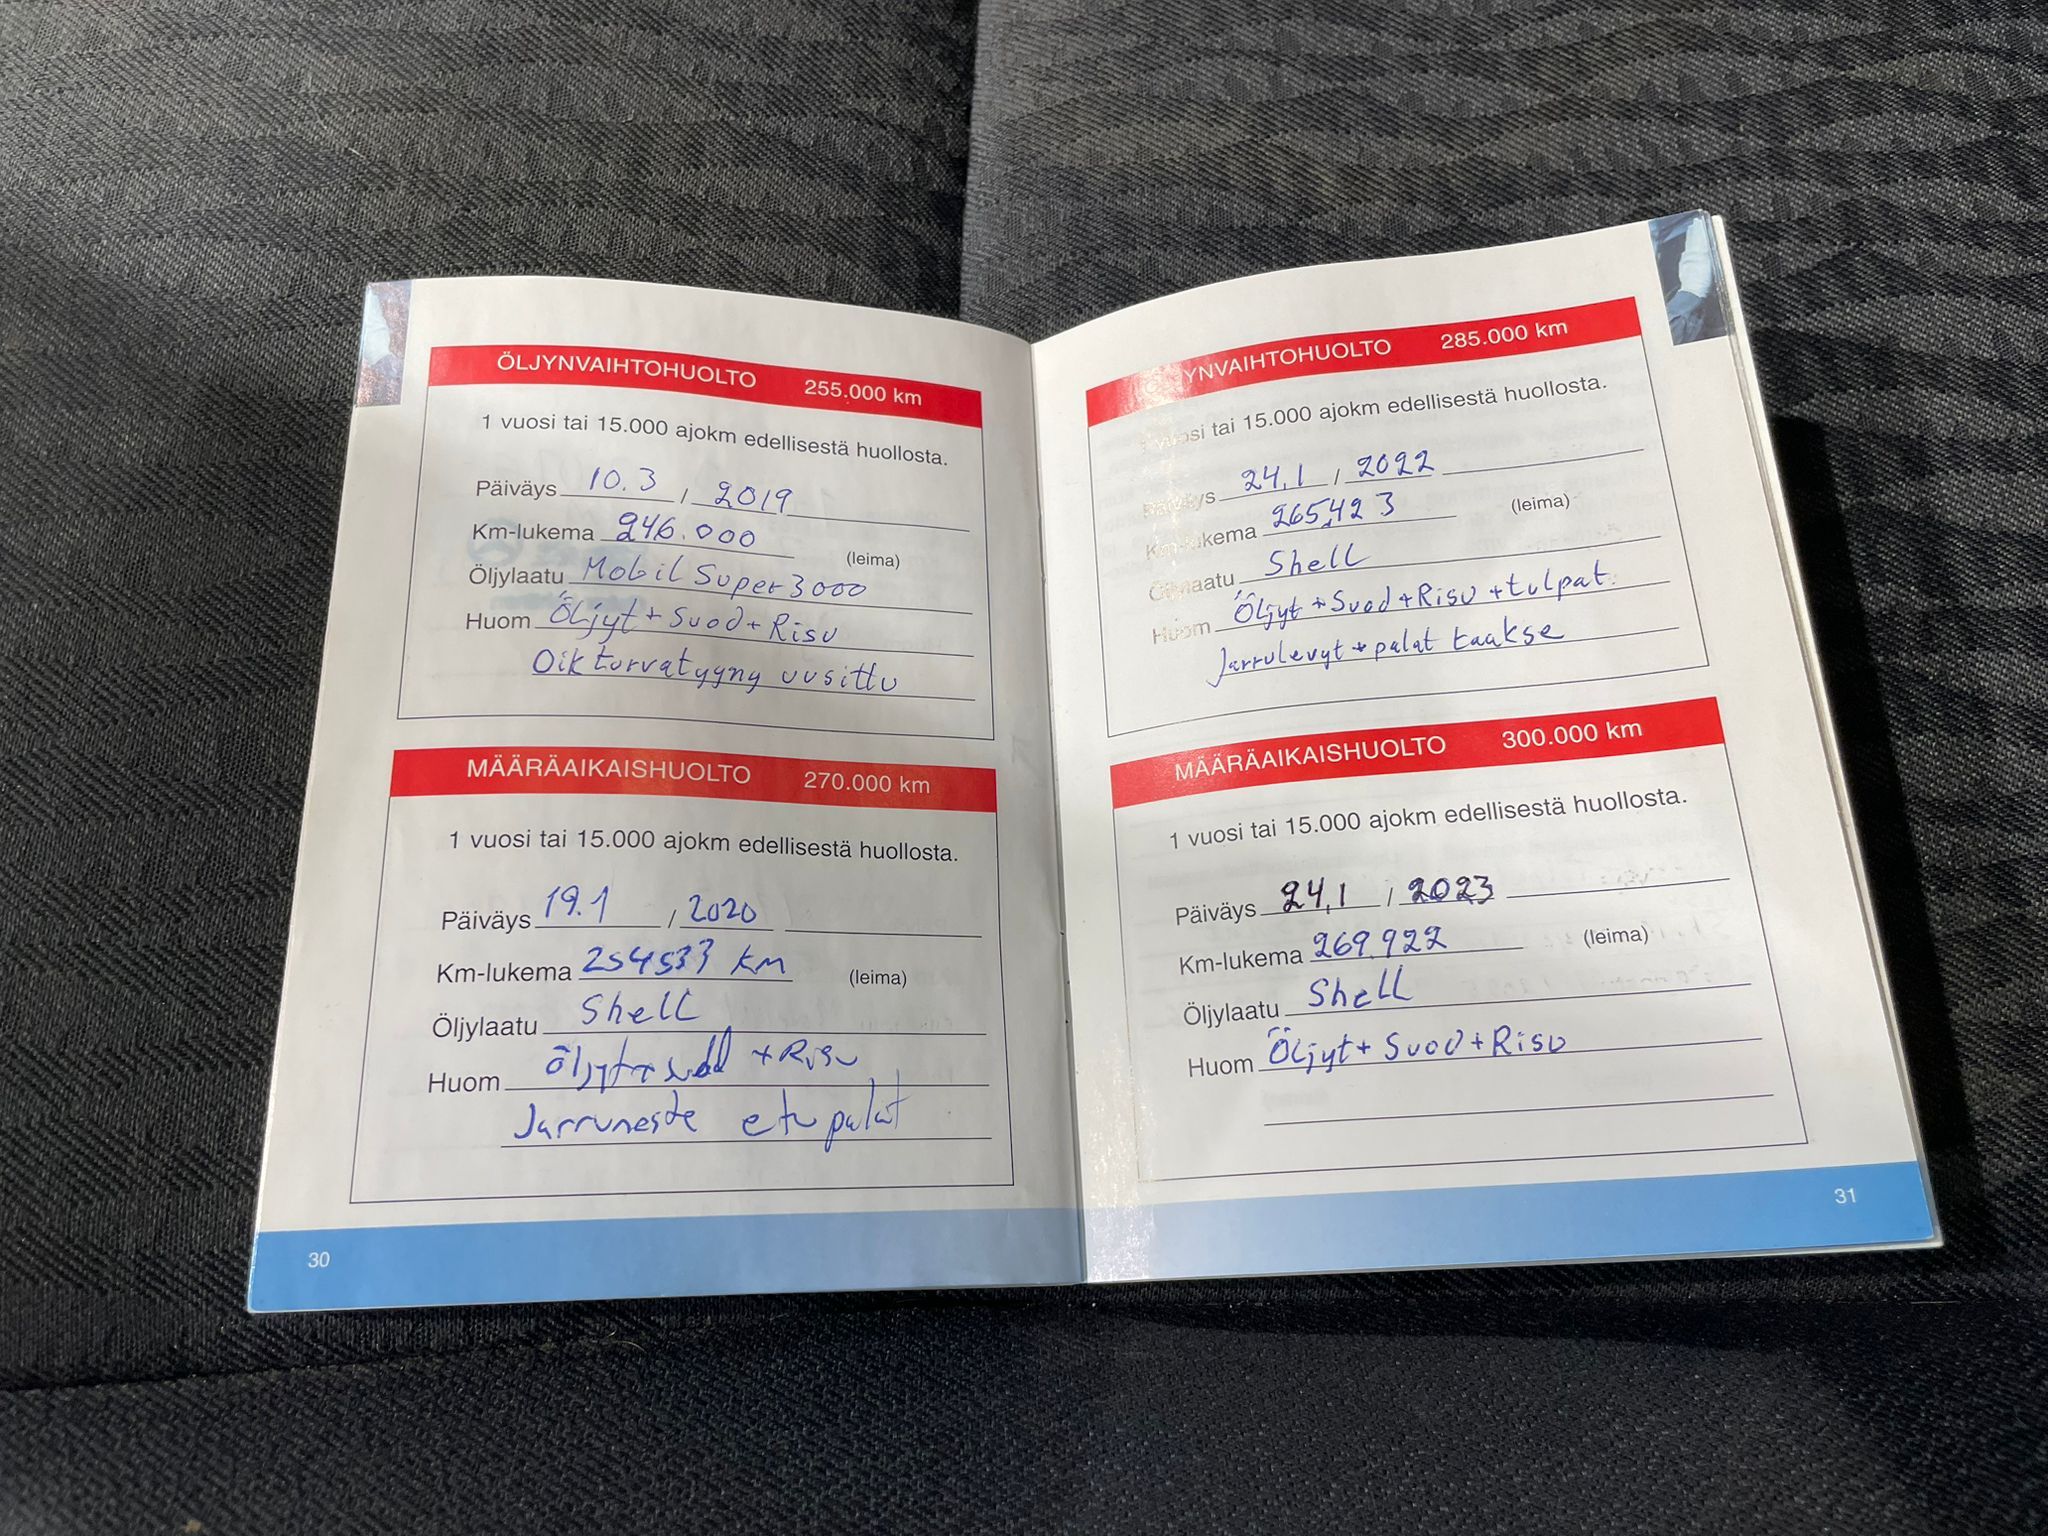 ÖLJYNVAIHTOHUOLTO 255.000 km
1 vuosi tai 15.000 ajokm edellisestä huollosta.
Päiväys 10.3 / 2019
Km-lukema 246.000 (leima)
Öljylaatu Mobil Super 3000
Huom Öljyt + Suod + Risu
Oik turvatyyny uusittu
MÄÄRÄAIKAISHUOLTO 270.000 km
1 vuosi tai 15.000 ajokm edellisestä huollosta.
Päiväys 19.1 / 2020
Km-lukema 254533 km (leima)
Öljylaatu Shell
Huom Öljyt + suod + Risu
Jarruneste etupalat
30
ÖLJYNVAIHTOHUOLTO 285.000 km
1 vuosi tai 15.000 ajokm edellisestä huollosta.
Päiväys 24.1 / 2022
Km-lukema 265.423 (leima)
Öljylaatu Shell
Huom Öljyt + Suod + Risu + tulpat.
Jarrulevyt + palat taakse
MÄÄRÄAIKAISHUOLTO 300.000 km
1 vuosi tai 15.000 ajokm edellisestä huollosta.
Päiväys 24.1 / 2023
Km-lukema 269.922 (leima)
Öljylaatu Shell
Huom Öljyt + Suod + Risu
31